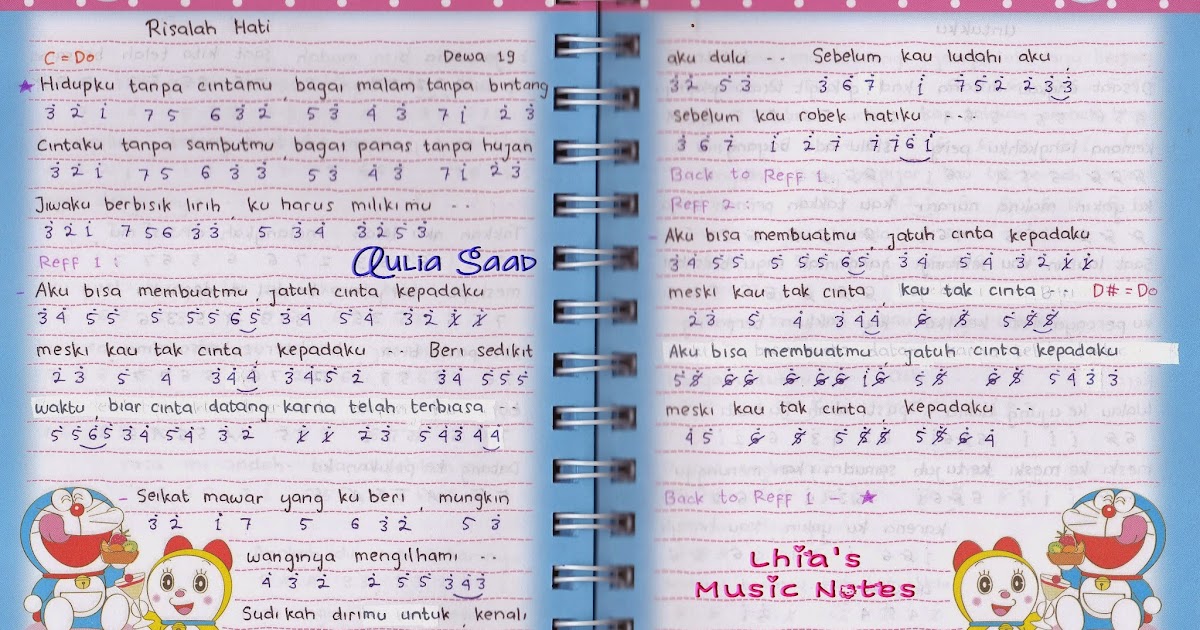 Risalah Hati
C = Do Dewa 19
★ Hidupku tanpa cintamu, bagai malam tanpa bintang
3̇ 2̇ 1̇ 7 5 6 3̇ 2̇ 5 3̇ 4̇ 3̇ 7 1̇ 2̇ 3̇
Cintaku tanpa sambutmu, bagai panas tanpa hujan
3̇ 2̇ 1̇ 7 5 6 3̇ 3̇ 5 3̇ 4̇ 3̇ 7 1̇ 2̇ 3̇
Jiwaku berbisik lirih, ku harus milikimu - -
3̇ 2̇ 1̇ 7 5 6 3̇ 3̇ 5 3̇ 4̇ 3̇ 2̇ 5̇ 3̇
Reff 1 :
Qulia Saad
- Aku bisa membuatmu, jatuh cinta kepadaku
3̇ 4̇ 5̇ 5̇ 5̇ 5̇ 5̇ 6̇ 5̇ 3̇ 4̇ 5̇ 4̇ 3̇ 2̇ 1̸̇ 1̸̇
meski kau tak cinta kepadaku - - - Beri sedikit
2̇ 3̇ 5̇ 4̇ 3̇ 4̇ 4̇ 3̇ 4̇ 5̇ 2̇ 3̇ 4̇ 5̇ 5̇ 5̇
waktu, biar cinta datang karna telah terbiasa - - -
5̇ 5̇ 6̇ 5̇ 3̇ 4̇ 5̇ 4̇ 3̇ 2̇ 1̸̇ 1̸̇ 2̇ 3̇ 5̇ 4̇ 3̇ 4̇ 4̇
- Seikat mawar yang ku beri, mungkin
3̇ 2̇ 1̇ 7 5 6 3̇ 2̇ 5 3̇
wanginya mengilhami - -
4̇ 3̇ 2̇ 2̇ 5̇ 5̇ 3̇ 4̇ 3̇
Sudikah dirimu untuk, kenali
aku dulu - - Sebelum kau ludahi aku,
3̇ 2̇ 5 3̇ 3 6 7 1̇ 7 5 2̇ 2̇ 3̇ 3̇
sebelum kau robek hatiku - - -
3 6 7 1̇ 2̇ 7 7 7 6 1̇
Back to Reff 1.
Reff 2 :
- Aku bisa membuatmu, jatuh cinta kepadaku
3̇ 4̇ 5̇ 5̇ 5̇ 5̇ 5̇ 6̇ 5̇ 3̇ 4̇ 5̇ 4̇ 3̇ 2̇ 1̸̇ 1̸̇
meski kau tak cinta, kau tak cinta - - D# = Do
2̇ 3̇ 5̇ 4̇ 3̇ 4̇ 4̇
Aku bisa membuatmu, jatuh cinta kepadaku
meski kau tak cinta kepadaku - - -
Back to Reff 1 - ★
Lhia's
Music Notes